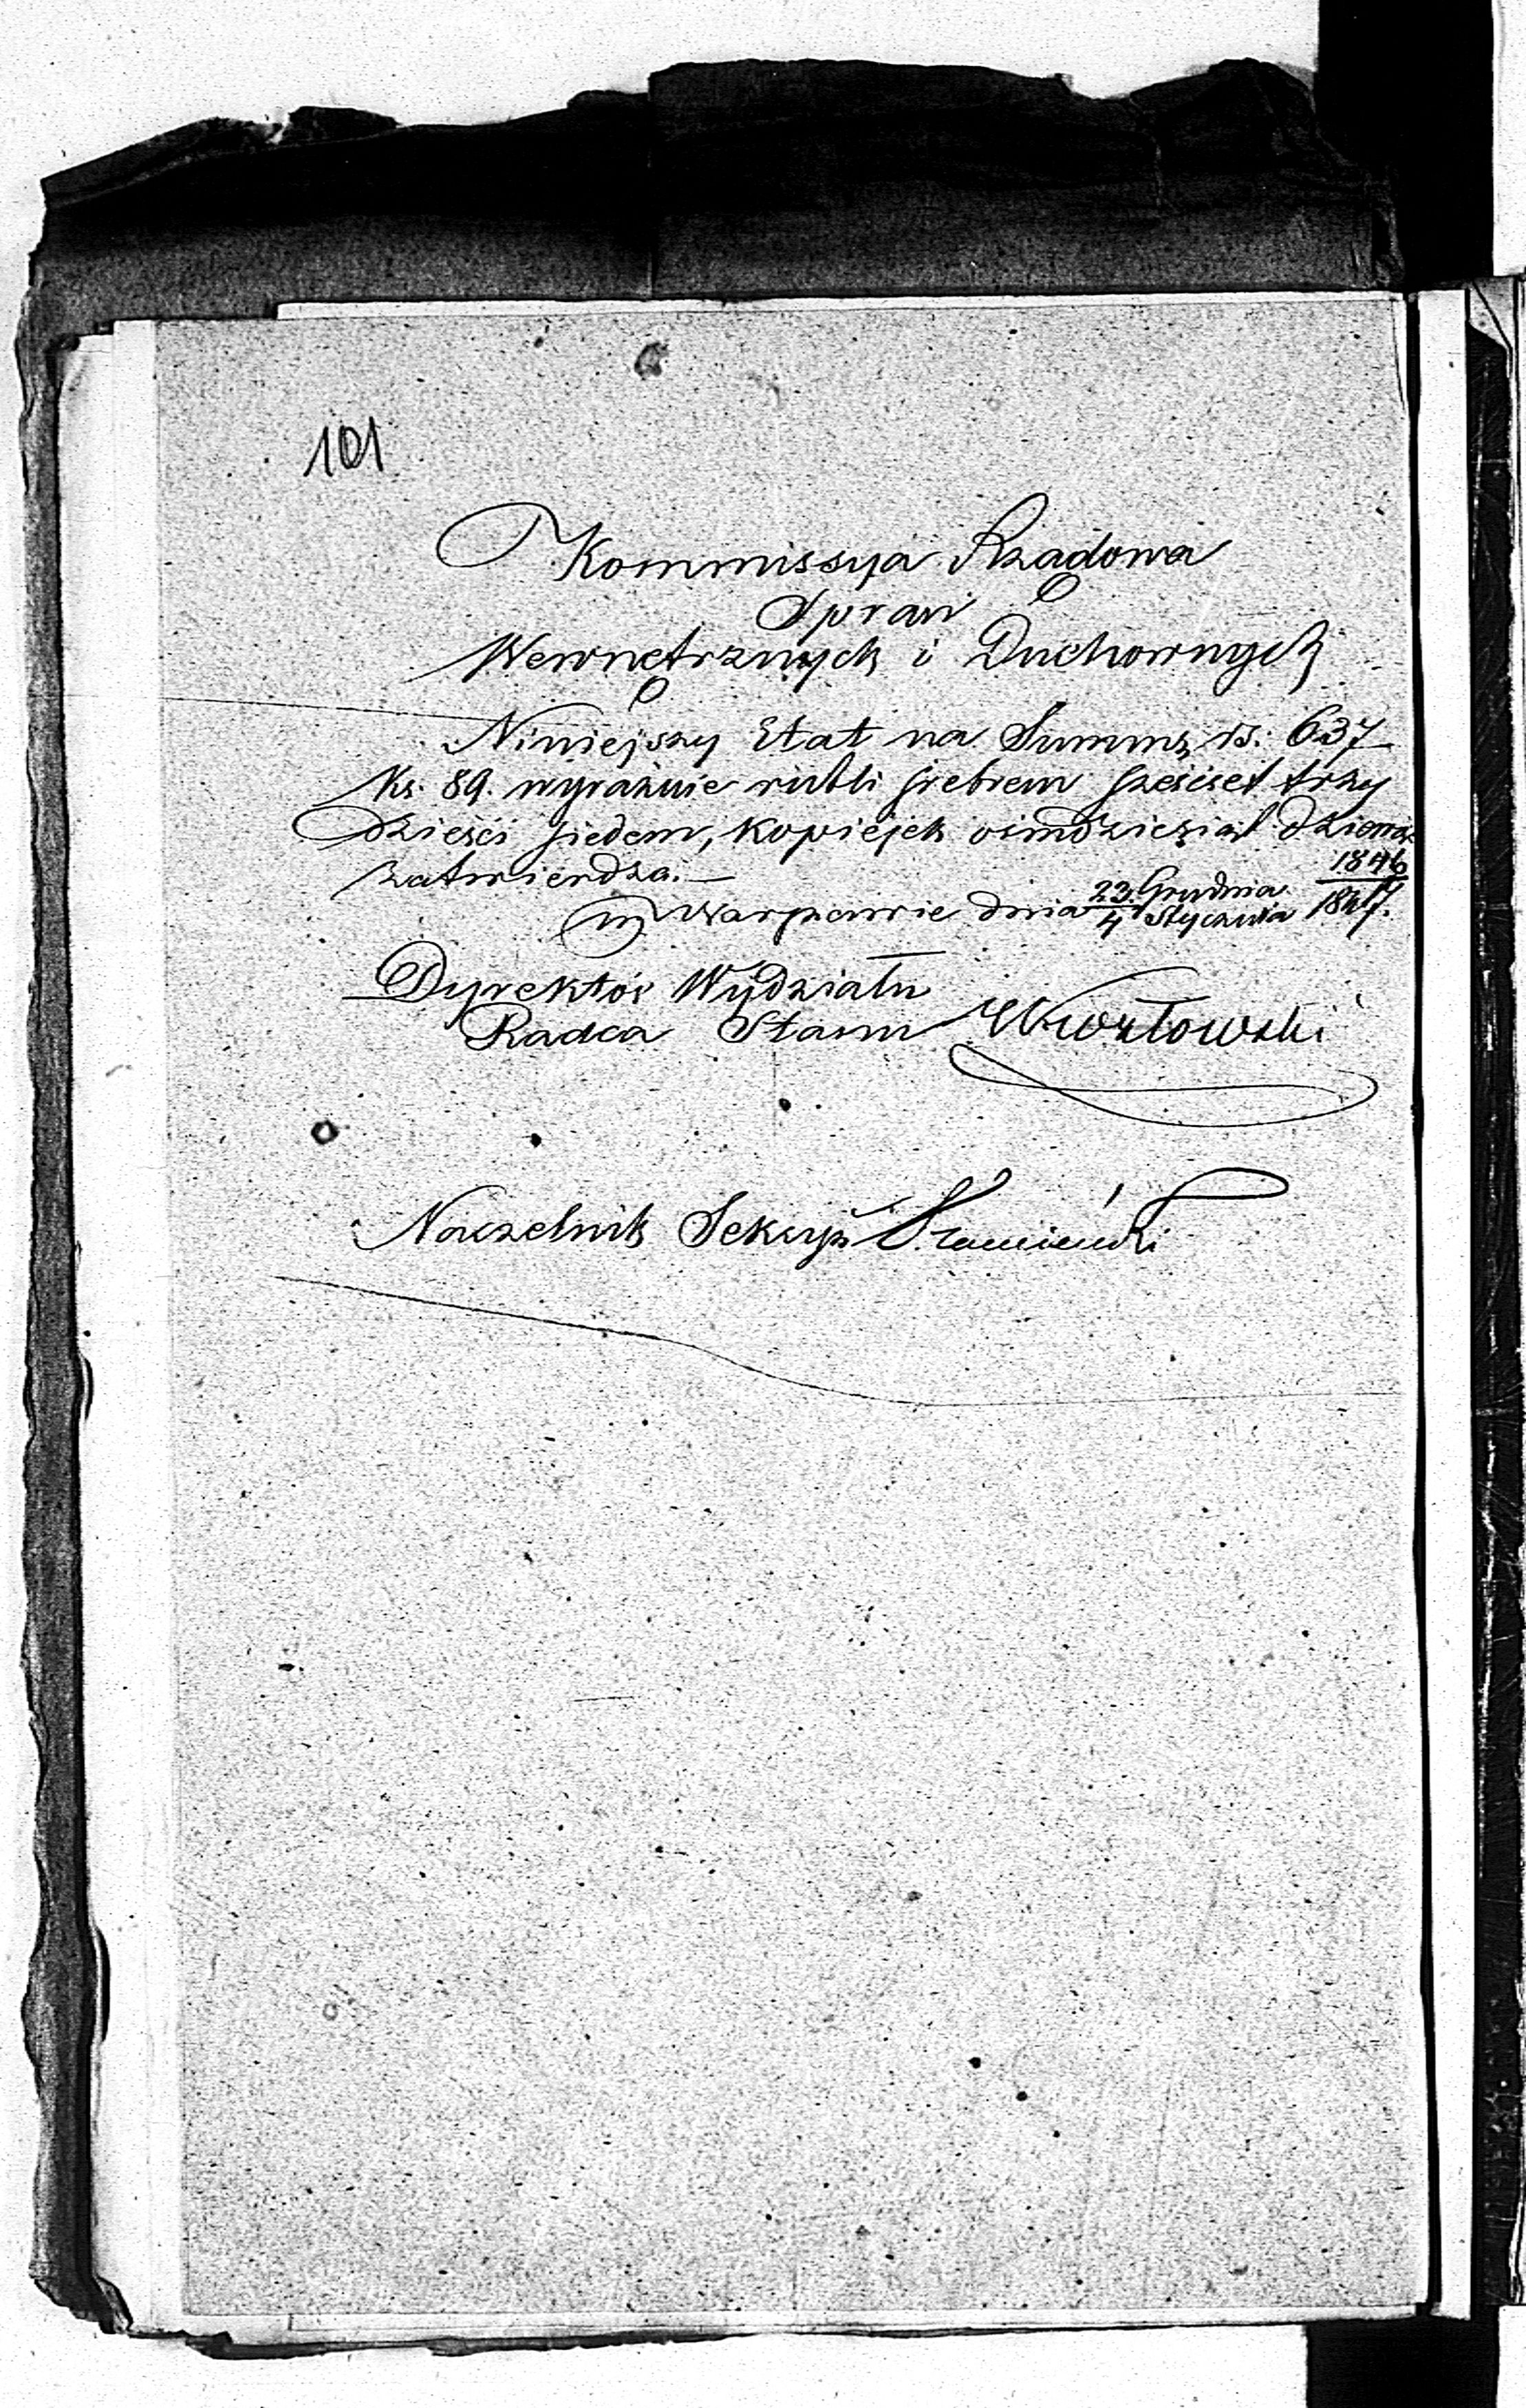 101
Kommissya Rządowa
Spraw
Wewnętrznych i Duchownych
Niniejszy Etat na Summę rs: 637
ks. 89. wyraźnie rubli srebrem sześćset trzy
dzieści siedem, kopiejek ośmdziesiąt dziewięć
zatwierdza.—
w Warszawie dnia 23. Grudnia 1846
4 Stycznia 1847.
Dyrektor Wydziału
Radca Stanu
Naczelnik Sekcyi